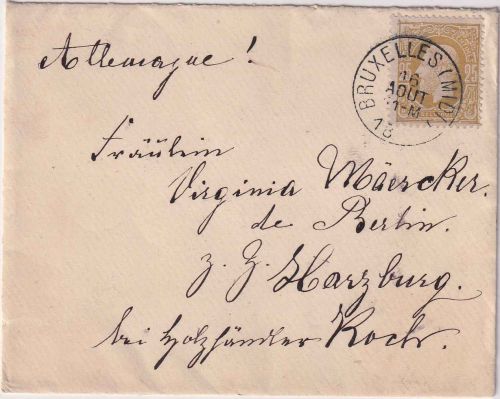 Allemagne!
BRUXELLES (MIDI)
16
AOUT
1-M
18
25
Fräulein
Virginia Mäercker.
de Berlin.
z. Z. Harzburg.
bei Holzhändler Koch.